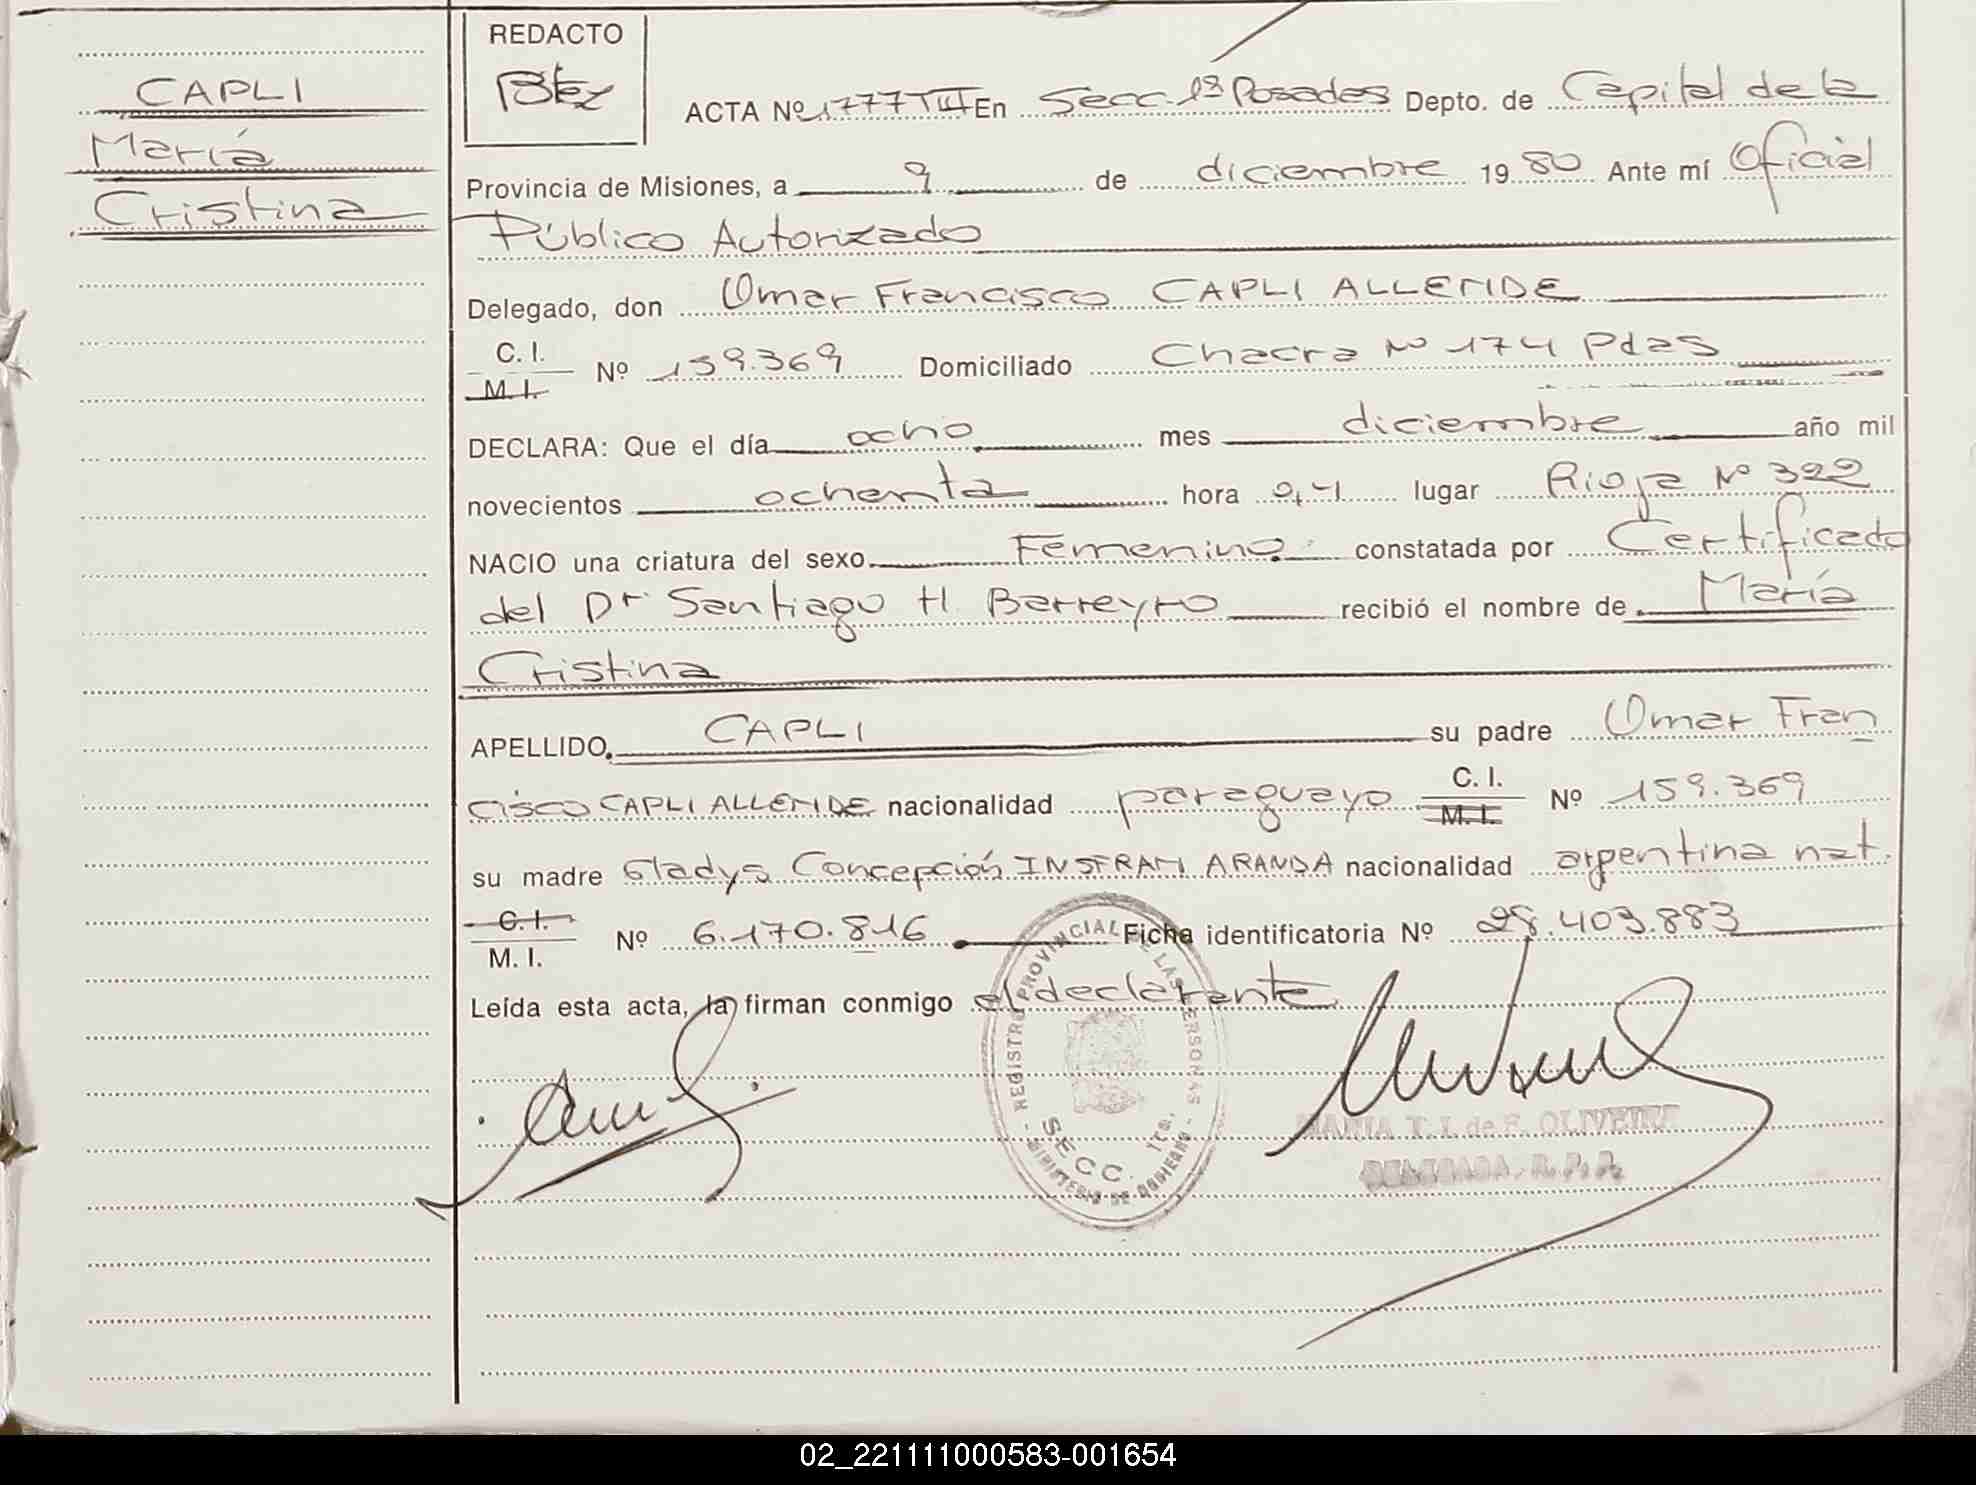 CAPLI
María
Cristina
REDACTO
ACTA Nº 1777 TIII En Secc. 1ª Posadas Depto. de Capital de la
Provincia de Misiones, a 9 de diciembre 1980 Ante mí Oficial
Público Autorizado
Delegado, don Omar Francisco CAPLI ALLENDE
C. I.
M. I. Nº 159.369 Domiciliado Chacra Nº 174 Pdas
DECLARA: Que el día ocho mes diciembre año mil
novecientos ochenta hora 0,41 lugar Rioja Nº 322
NACIO una criatura del sexo Femenino constatada por Certificado
del Dr Santiago H Barreyro recibió el nombre de María
Cristina
APELLIDO CAPLI su padre Omar Fran
cisco CAPLI ALLENDE nacionalidad paraguayo C. I. M. I. Nº 159.369
su madre Gladys Concepción INSFRAN ARANDA nacionalidad argentina nat.
C. I.
M. I. Nº 6.170.816 Ficha identificatoria Nº 28.403.883
Leída esta acta, la firman conmigo el declarante
REGISTRO PROVINCIAL DE LAS PERSONAS
SECC. 1ra.
MINISTERIO DE GOBIERNO
MARIA T. I. de F. OLIVEIRA
DELEGADA R. P. P.
02_221111000583-001654